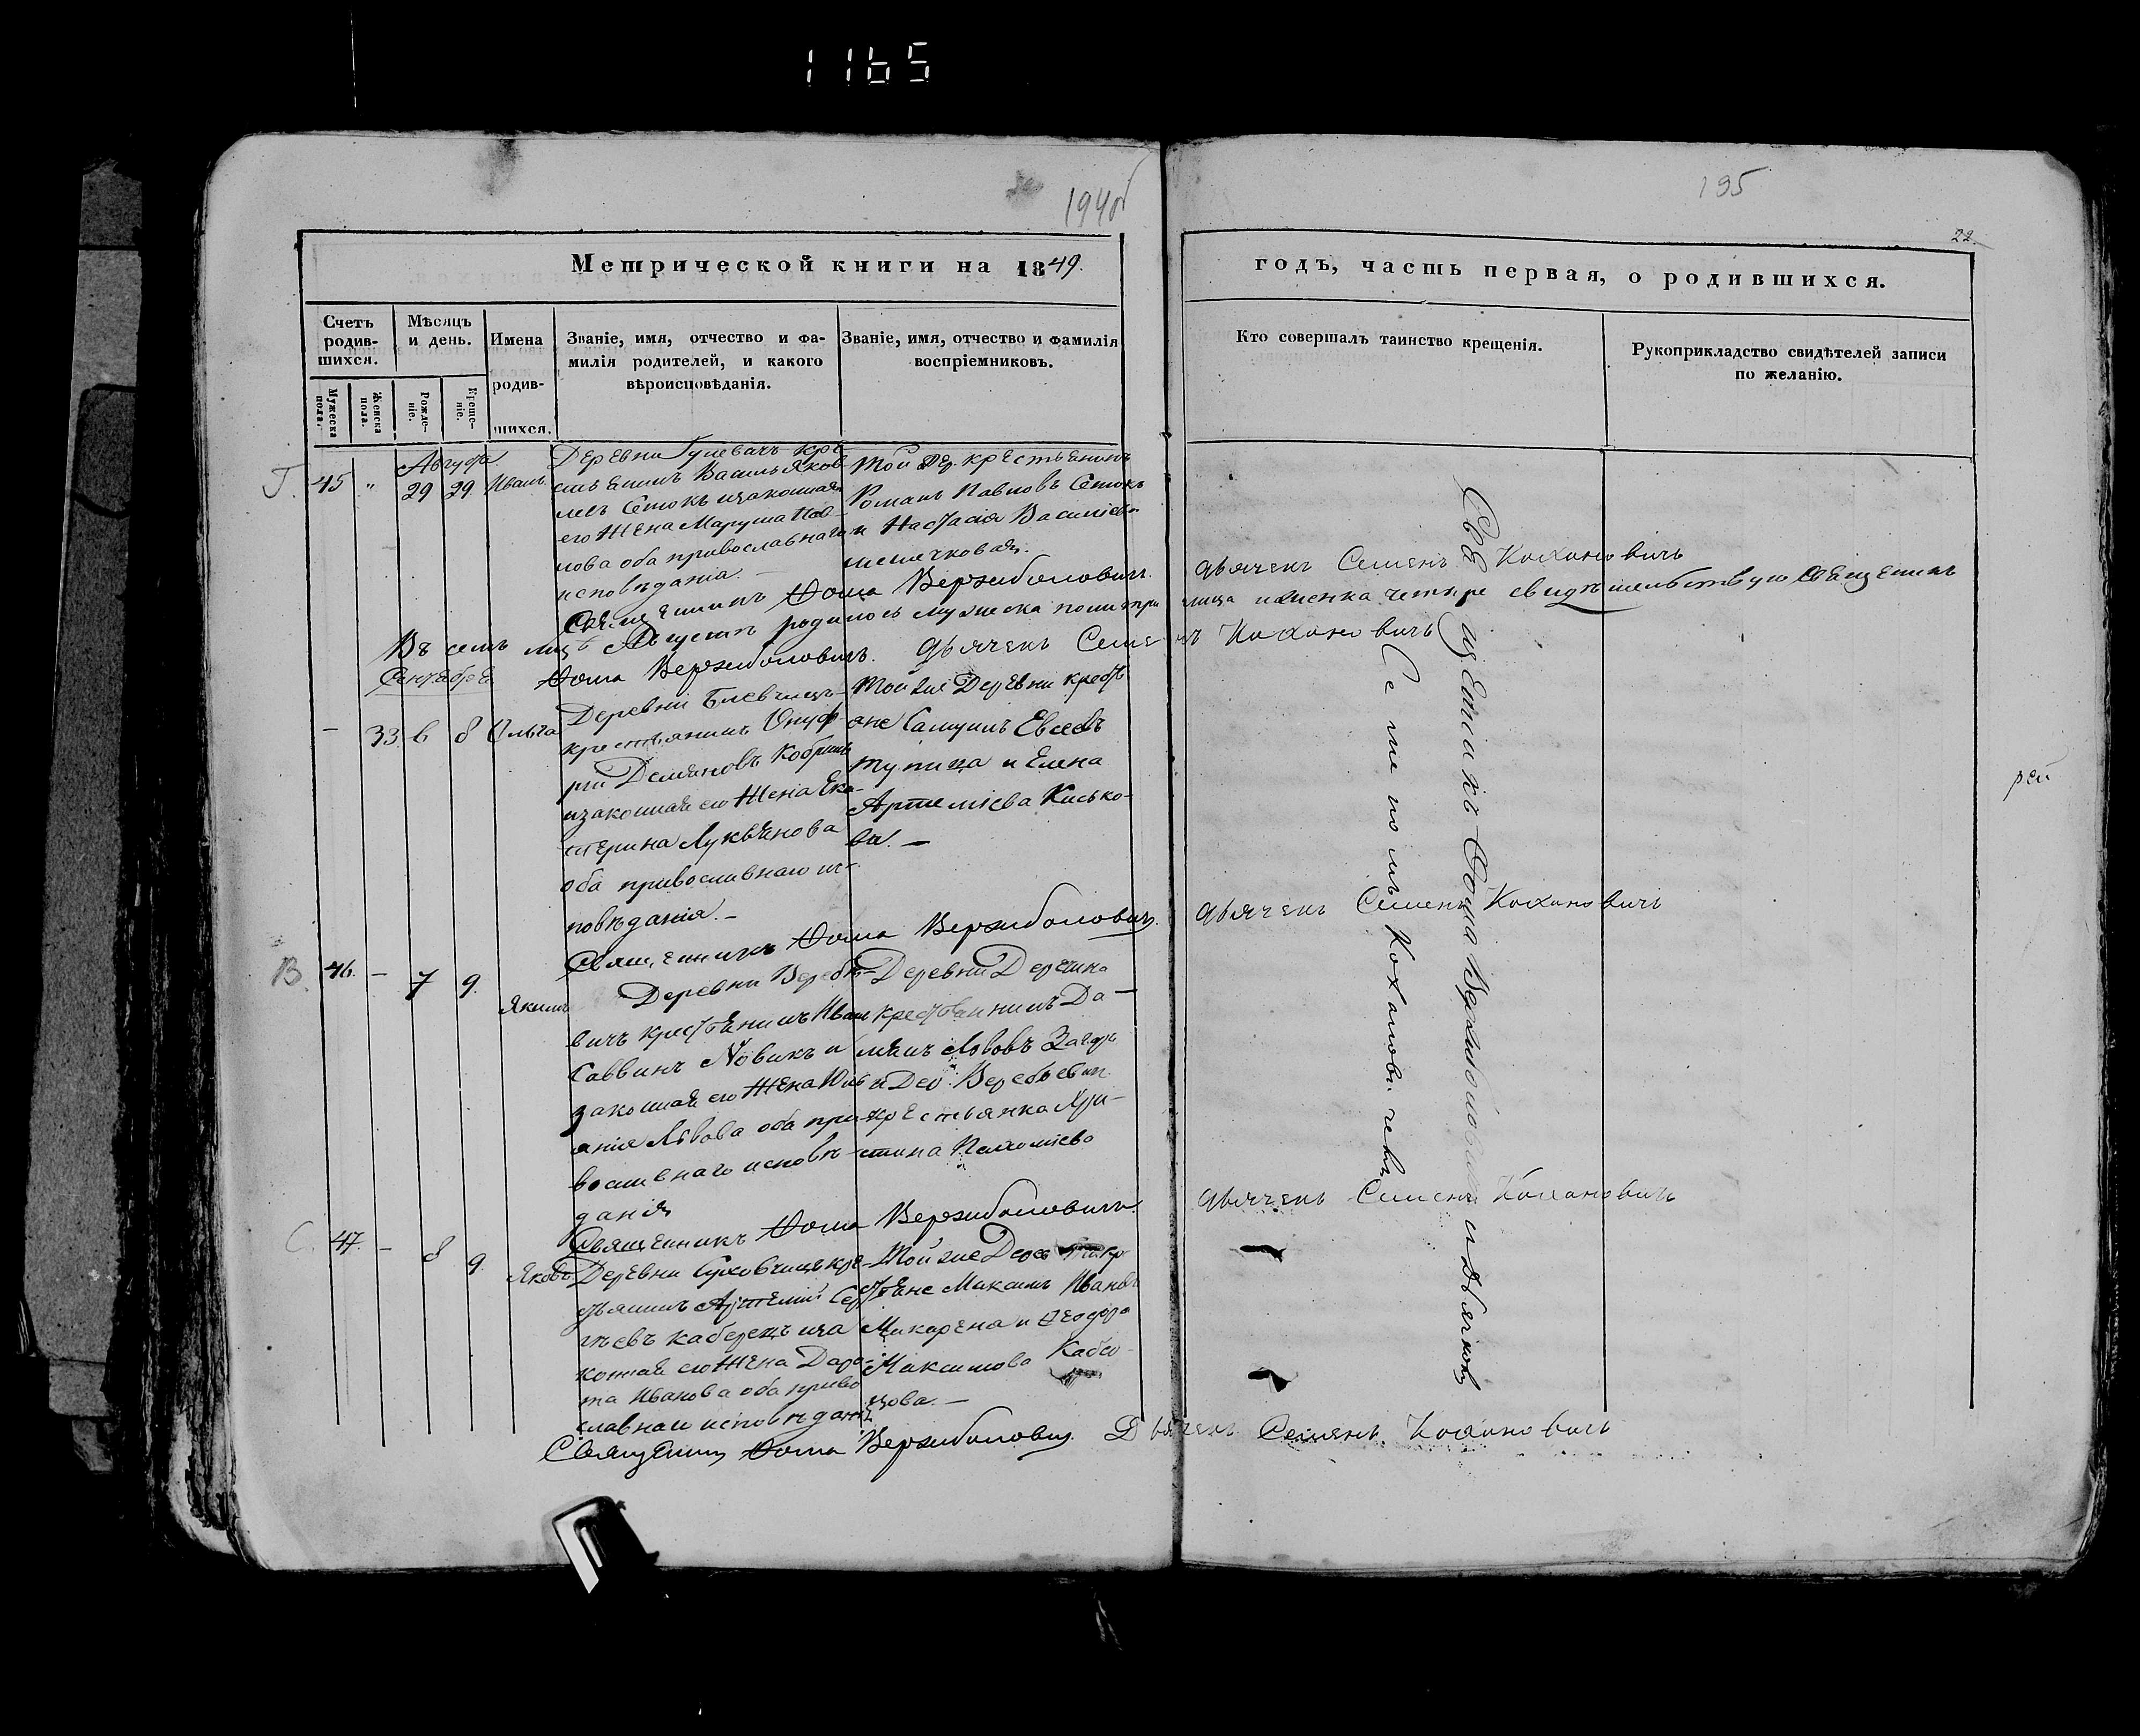 1165
194об
195
22.
Метрической книги на 1849.
годъ, часть первая, о родившихся.
Счетъ родив-шихся.
Мѣсяцъ и день.
Имена родив-шихся.
Званіе, имя, отчество и фа-
милія родителей, и какого
вѣроисповѣданія.
Званіе, имя, отчество и фамилія
воспріемниковъ.
Кто совершалъ таинство крещенія.
Рукоприкладство свидѣтелей записи
по желанію.
Мужеска пола.
Женска пола.
Рожде-ніе.
Креще-ніе.
Августа
45 " 29 29 Иванъ
Деревни Гулевачъ кре-
стьянинъ Василь Яков-
левъ Сетокъ изаконная
его жена Маруша Пав-
лова оба православнаго
исповѣданія. —
Той дер. крестьянинъ
Романъ Павловъ Сетокъ
и Настасія Василіева
Священникъ Фома Вержиболовичъ.
дьячекъ Семенъ Кохановичъ
Въ семъ мцѣ Августѣ родилось мужеска пола три
лица и женска четыре свидѣтельствую Священникъ
Фома Вержиболовичъ. дьячекъ Семенъ Кохановичъ
Сентября
— 33 6 8 Ольга
Деревни Блевчицъ
крестьянинъ Онуф-
рій Демяновъ Кобринъ
изаконная его жена Ека-
терина Лукьянова
оба православнаго ис-
повѣданія. —
Той же Деревни крестья
яне Самуилъ Евсеевъ
тупица и Елена
Артеміева Касько-
ва. —
Священникъ Фома Вержиболовичъ.
дьячекъ Семенъ Кохановичъ
В. 46. — 7 9. Якимъ
Деревни Веребь-
вичъ крестьянинъ Иван
Саввинъ Новикъ и
законная его жена Юль
янія Львова оба пра-
вославнаго исповѣ-
данія
Деревни Деречина
крестьянинъ Да-
міанъ Львовъ
и Дер. Веребьевич.
крестьянка Хри-
стина Пахоміева
Священникъ Фома Вержиболовичъ.
дьячекъ Семенъ Кохановичъ
С. 47. — 8 9. Яковъ
Деревни Суховчицъ кре-
стьянинъ Артемій Сер-
гѣевъ каберецъ иза
конная его жена Даро-
та Иванова оба право
славнаго исповѣданія
Той же Дерев
стьяне Максимъ Ивановъ
Макарена и Феодора
Максимова Кабе-
цова. —
Священникъ Фома Вержиболовичъ.
Дьячекъ Семенъ Кохановичъ
Священникъ Фома Вержиболовичъ и дьячокъ
Семеномъ Кохановичемъ
рей